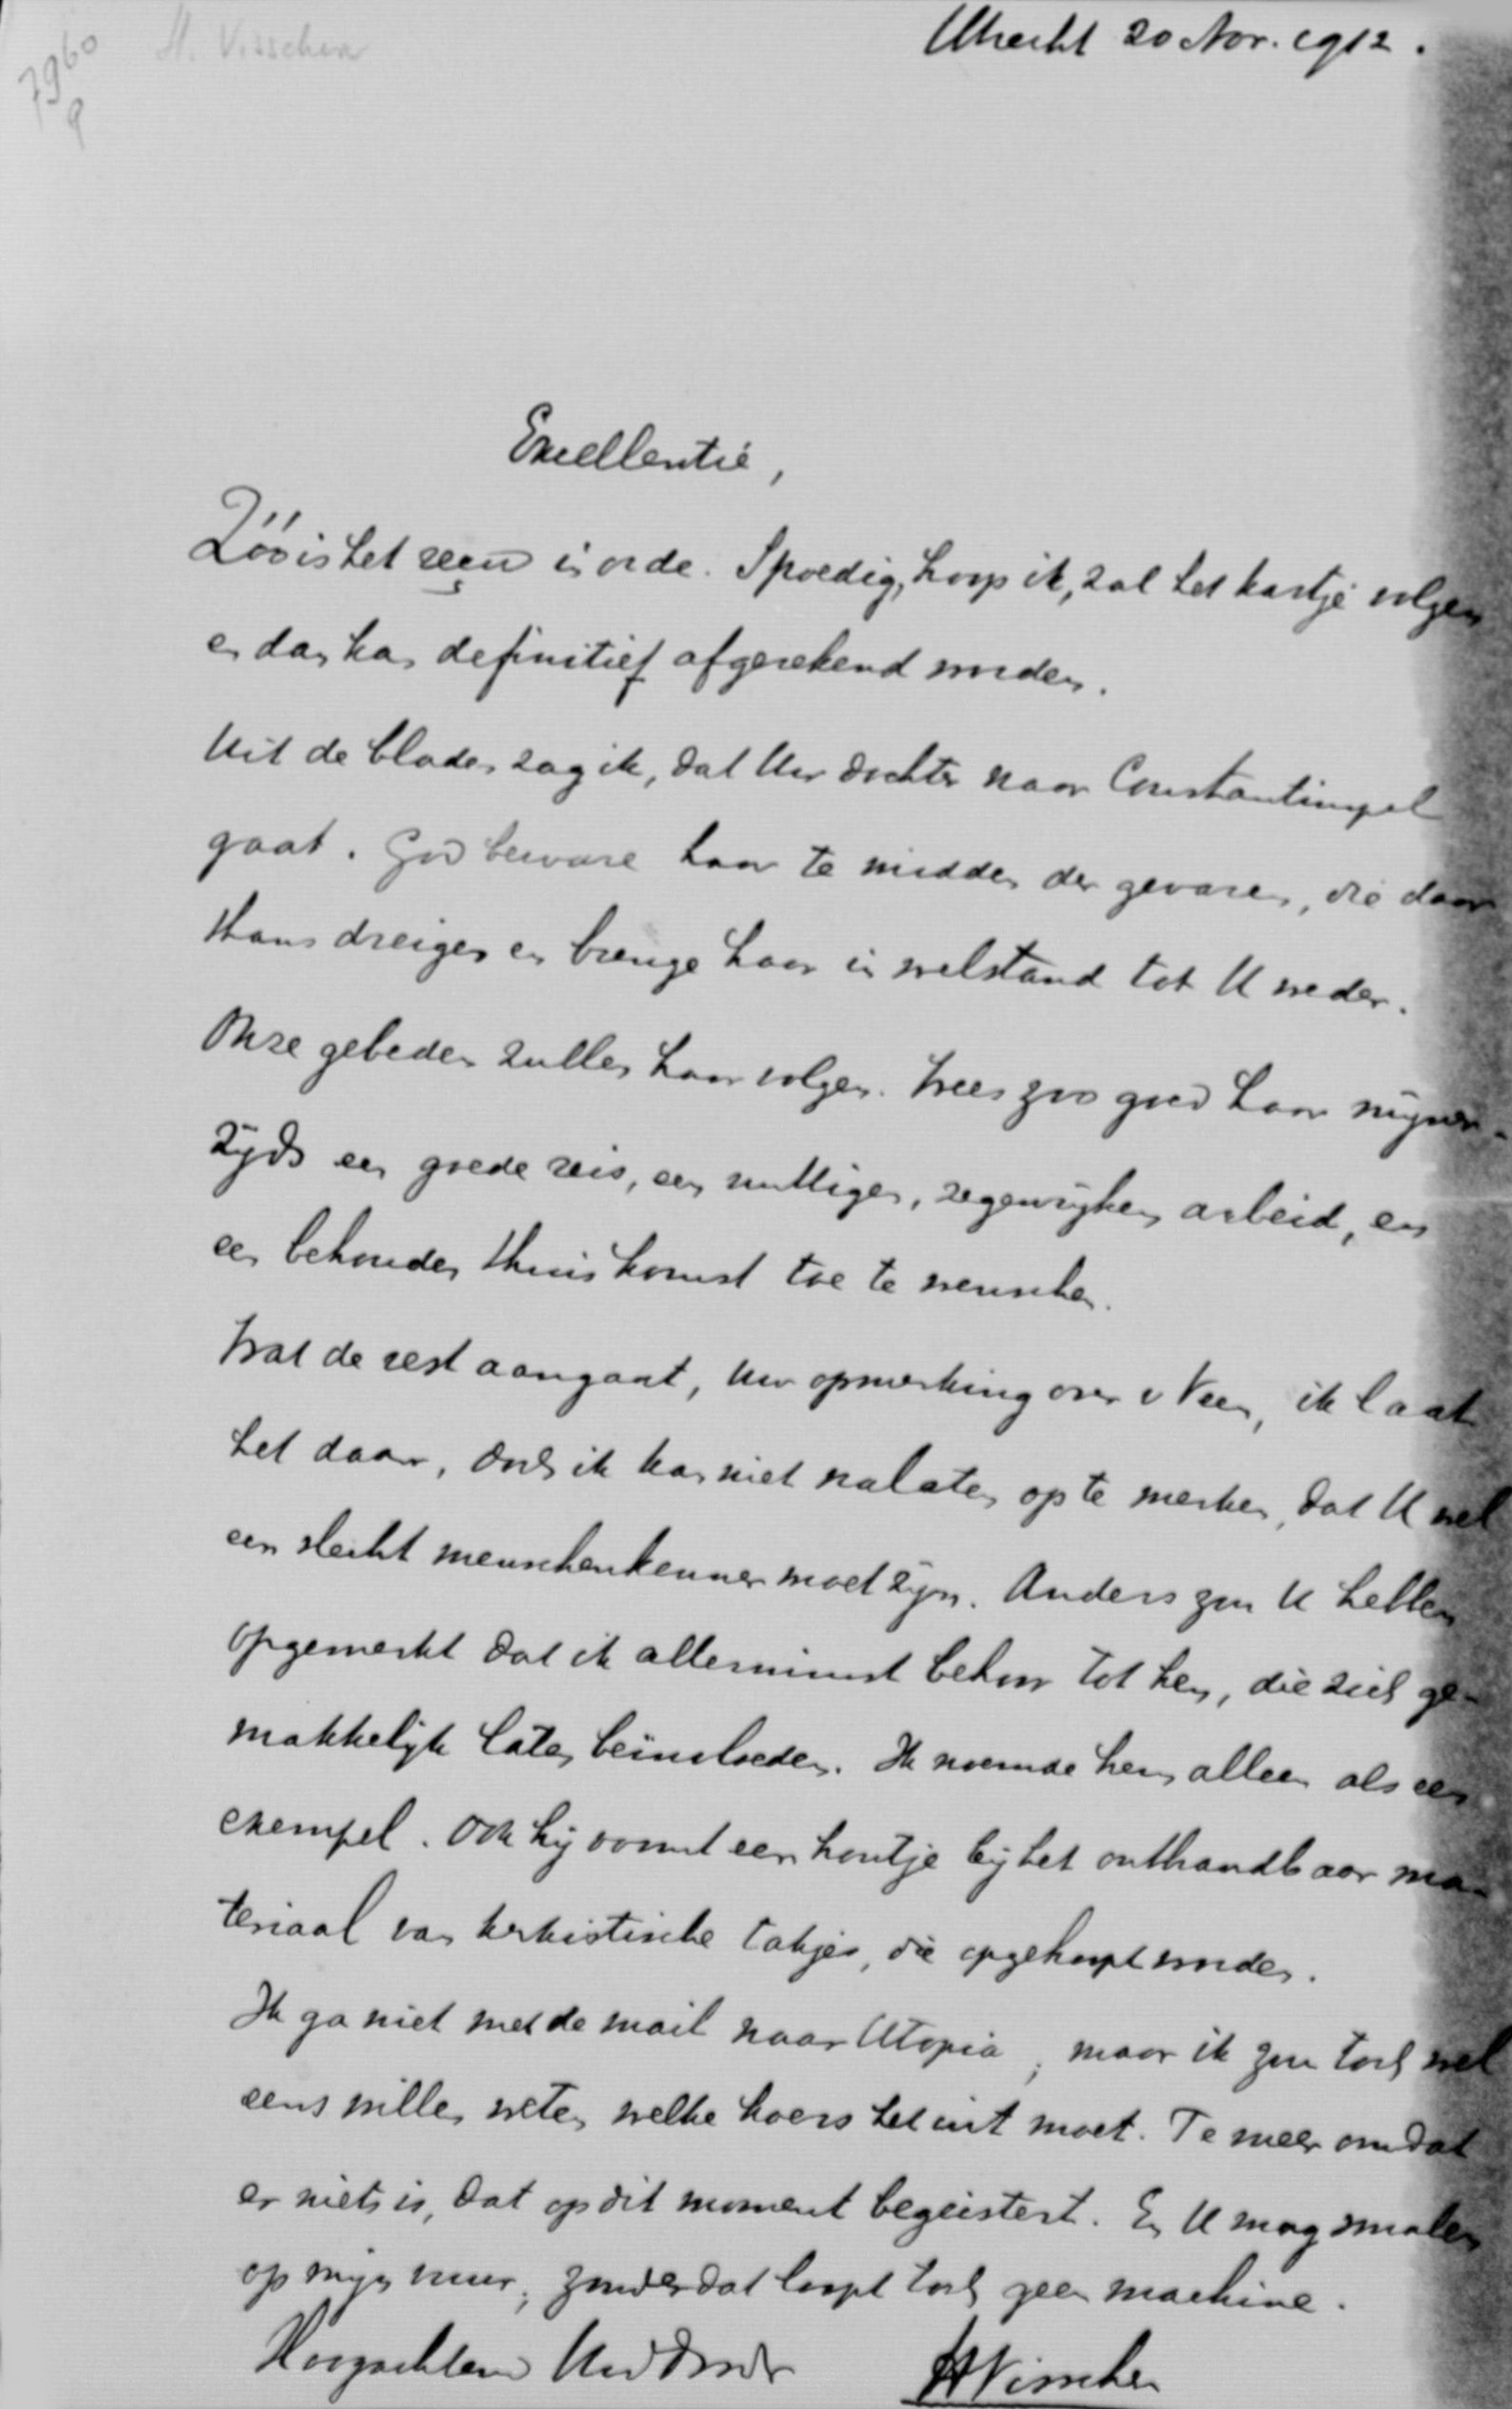 7960
a
H. Visscher
Utrecht 20 Nov. 1912.
Excellentie,
Zóó is het reçu in orde. Spoedig, hoop ik, zal het kastje volgen
en dan kan definitief afgerekend worden.
Uit de bladen zag ik, dat Uw dochter naar Constantinopel
gaat. God beware haar te midden der gevaren, die daar
thans dreigen en brenge haar in welstand tot U weder.
Onze gebeden zullen haar volgen. Wees zoo goed haar mijner-
zijds een goede reis, een nuttigen, zegenrijken arbeid, en
een behouden thuiskomst toe te wenschen.
Wat de rest aangaat, Uw opmerking over v Veen, ik laat
het daar, doch ik kan niet nalaten op te merken, dat U wel
een slecht menschenkenner moet zijn. Anders zou U hebben
opgemerkt dat ik allerminst behoor tot hen, die zich ge-
makkelijk laten beïnvloeden. Ik noemde hem alleen als een
exempel. Ook hij vormt een houtje bij het ontbrandbaar ma-
teriaal van kerkistische takjes, die opgehoopt worden.
Ik ga niet met de mail naar Utopia; maar ik zou toch wel
eens willen weten welke koers het uit moet. Te meer omdat
er niets is, dat op dit moment begeistert. En U mag smalen
op mijn vuur; zonder dat loopt toch geen machine.
Hoogachtend Uw dw dr
HVisscher